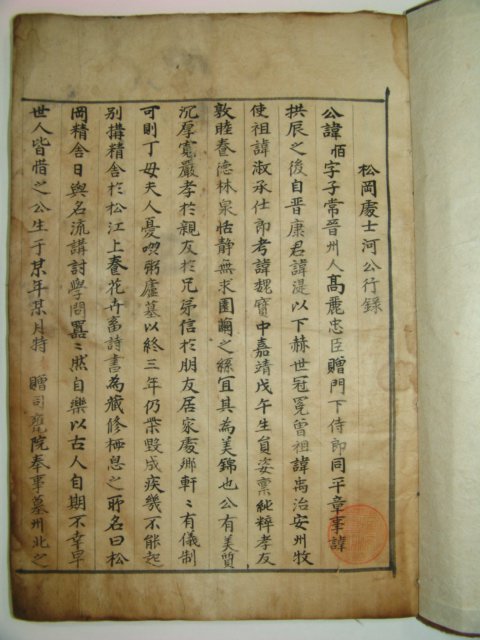 松岡處士河公行錄
公諱恒字子常晉州人高麗忠臣贈門下侍郎同平章事諱
拱辰之後自晉康君諱湜以下赫世冠冕曾祖諱禹治安州牧
使祖諱淑承仕郎考諱魏寶中嘉靖戊午生員姿稟純粹孝友
敦睦養德林泉恬靜無求園繭之絲宜其為美錦也公有美質
沉厚寬嚴孝於親友於兄弟信於朋友居家處鄉軒〻有儀制
可則丁母夫人憂啜粥廬墓以終三年仍柴毀成疾幾不能起
別搆精舍於松江上養花卉畜詩書為藏修極息之所名曰松
岡精舍日與名流講討學問囂〻然自樂以古人自期不幸早
世人皆惜之公生于某年某月特 贈司饔院奉事墓州北之